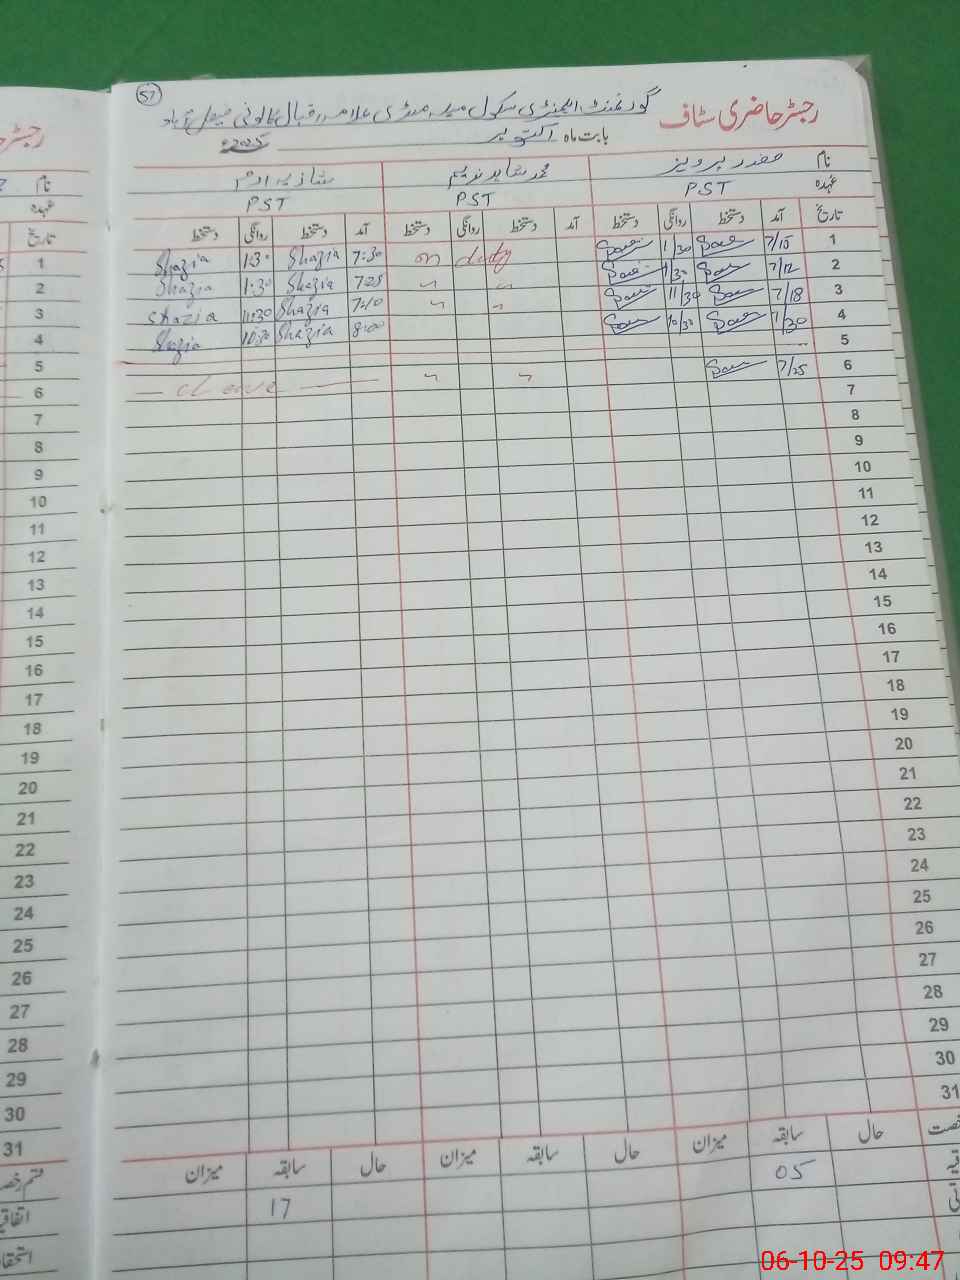 57
گورنمنٹ ایلیمنٹری سکول علامہ اقبال کالونی
رجسٹر حاضری سٹاف
بابت ماہ اکتوبر 2025ء
نام صفدر پرویز محمد شاہد ندیم شازیہ ارم
عہدہ PST PST PST
تاریخ آمد دستخط روانگی دستخط آمد دستخط روانگی دستخط آمد دستخط روانگی دستخط
1 7/15 1/30 on duty 7:30 Shazia 1:30 Shazia
2 7/12 1/30 " " 7:25 Shazia 1:30 Shazia
3 7/18 11/30 " " 7:40 Shazia 11:30 Shazia
4 7/30 10/30 8:00 Shazia 10:30 Shazia
5
6 7/25 " " c leave
7
8
9
10
11
12
13
14
15
16
17
18
19
20
21
22
23
24
25
26
27
28
29
30
31
حال سابقہ میزان حال سابقہ میزان حال سابقہ میزان
05 17
رجسٹر
نام
عہدہ
تاریخ
1
2
3
4
5
6
7
8
9
10
11
12
13
14
15
16
17
18
19
20
21
22
23
24
25
26
27
28
29
30
31
06-10-25 09:47